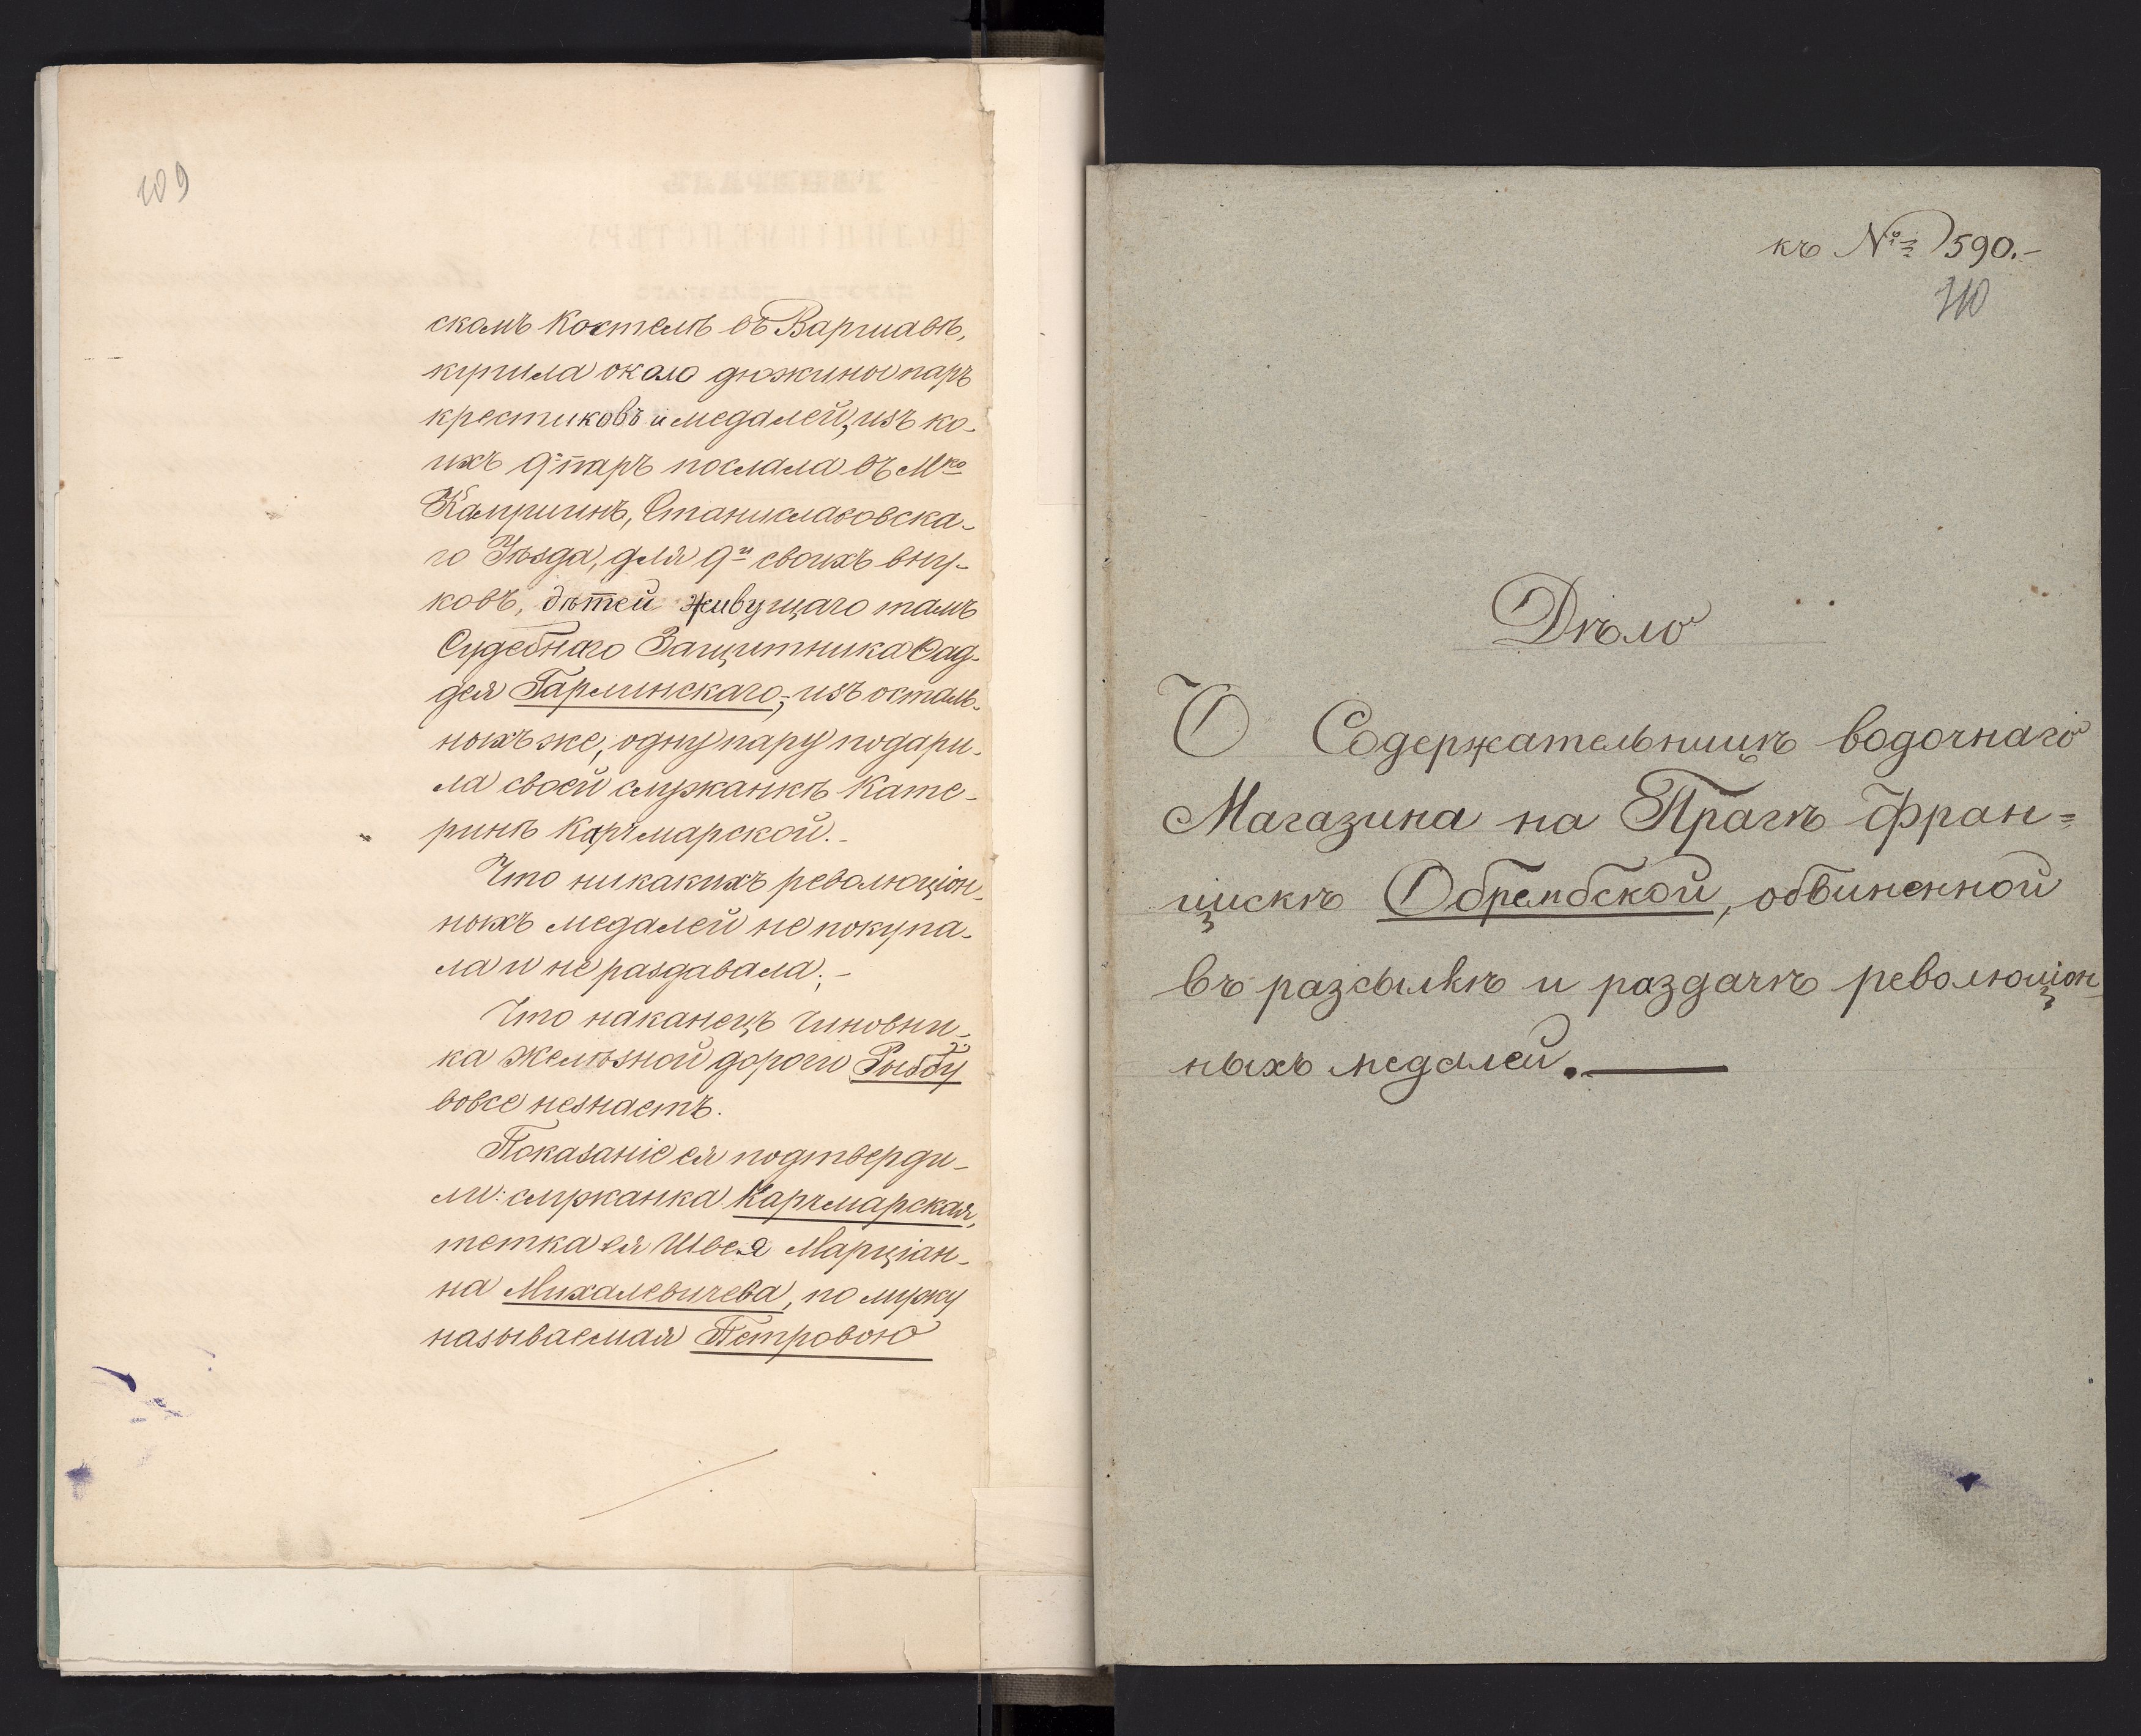 109
скомъ Костелѣ въ Варшавѣ,
купила около дюжины паръ
крестиковъ и медалей, изъ ко-
ихъ 9ть паръ послала въ Мко
Кампинъ, Станиславовска-
го Уѣзда, для 9и своихъ вну-
ковъ, дѣтей живущаго тамъ
Судебнаго Защитника Фад-
дея Гарлинскаго; изъ осталь-
ныхъ же, одну пару подари-
ла своей служанкѣ Кате-
ринѣ Карчмарской.-
Что никакихъ революціон-
ныхъ медалей не покупа-
ла и не раздавала;-
Что наконецъ Чиновни-
ка Желѣзной дороги Рыббу
вовсе незнаетъ.
Показаніе ея подтверди-
ли: служанка Карчмарская,
тетка ея Швея Марціан-
на Михалевичева, по мужу
называемая Петровою
къ № 590.-
110
Дѣло
О Содержательницѣ водочнаго
Магазина на Прагѣ Фран=
цискѣ Обрембской, обвиненной
въ разсылкѣ и раздачѣ революціон-
ныхъ медалей.